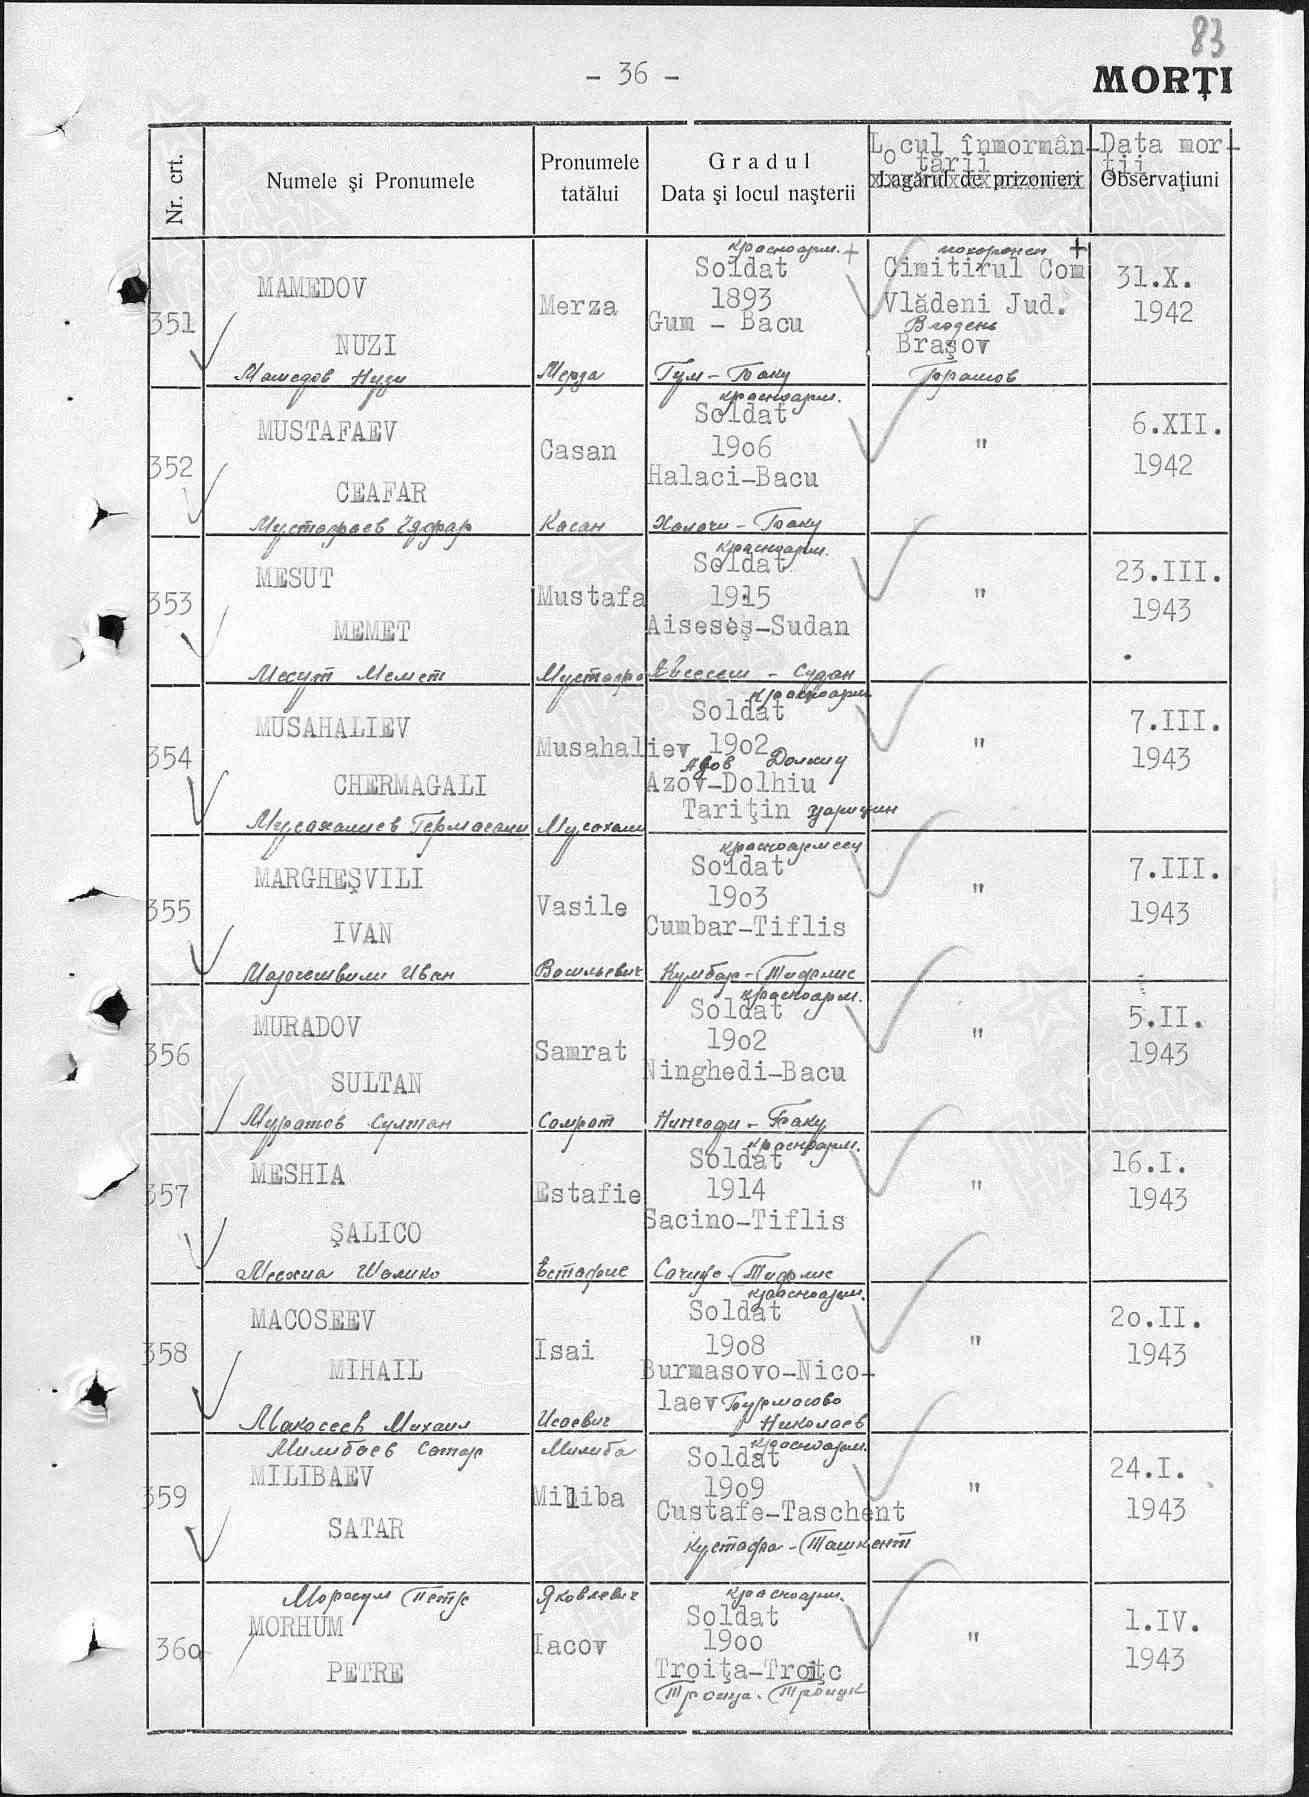 83
- 36 -
MORŢI
Nr. crt.
Numele şi Pronumele
Pronumele
tatălui
Gradul
Data şi locul naşterii
Locul înmormân-
tării
Lagărul de prizonieri
Data mor-
ţii
Observaţiuni
351
MAMEDOV
NUZI
Мамедов Нузи
Merza
Мерза
красноарм. +
Soldat
1893
Gum - Bacu
Гум - Баку
похоронен +
Cimitirul Com
Vlădeni Jud.
Владень
Braşov
Брашов
31.X.
1942
352
MUSTAFAEV
CEAFAR
Мустафаев Чафар
Casan
Касан
красноарм.
Soldat
19o6
Halaci-Bacu
Халачи - Баку
"
6.XII.
1942
353
MESUT
MEMET
Месут Мемет
Mustafa
Мустафа
красноарм.
Soldat
1915
Aiseseş-Sudan
Айсесеш - Судан
"
23.III.
1943
354
MUSAHALIEV
CHERMAGALI
Мусахалиев Гермагали
Musahaliev
Мусахали
красноарм
Soldat
19o2
Азов Долхиу
Azov-Dolhiu
Tariţin Царицин
"
7.III.
1943
355
MARGHEŞVILI
IVAN
Маргешвили Иван
Vasile
Васильевич
красноармеец
Soldat
19o3
Cumbar-Tiflis
Кумбар - Тифлис
"
7.III.
1943
356
MURADOV
SULTAN
Муратов Султан
Samrat
Самрат
красноарм.
Soldat
19o2
Ninghedi-Bacu
Нингеди - Баку
"
5.II.
1943
357
MESHIA
ŞALICO
Месхиа Шалико
Estafie
Естафие
красноарм.
Soldat
1914
Sacino-Tiflis
Сачино - Тифлис
"
16.I.
1943
358
MACOSEEV
MIHAIL
Макосеев Михаил
Isai
Исаевич
красноарм.
Soldat
19o8
Burmasovo-Nico-
laev Бурмасово
Николаев
"
2o.II.
1943
359
Милибаев Сатар
MILIBAEV
SATAR
Милиба
Miliba
красноарм.
Soldat
19o9
Custafe-Taschent
Кустафа - Ташкент
"
24.I.
1943
36o
Моргум Петр
MORHUM
PETRE
Яковлевич
Iacov
красноарм.
Soldat
19oo
Troiţa-Troiţc
Троица - Троицк
"
1.IV.
1943